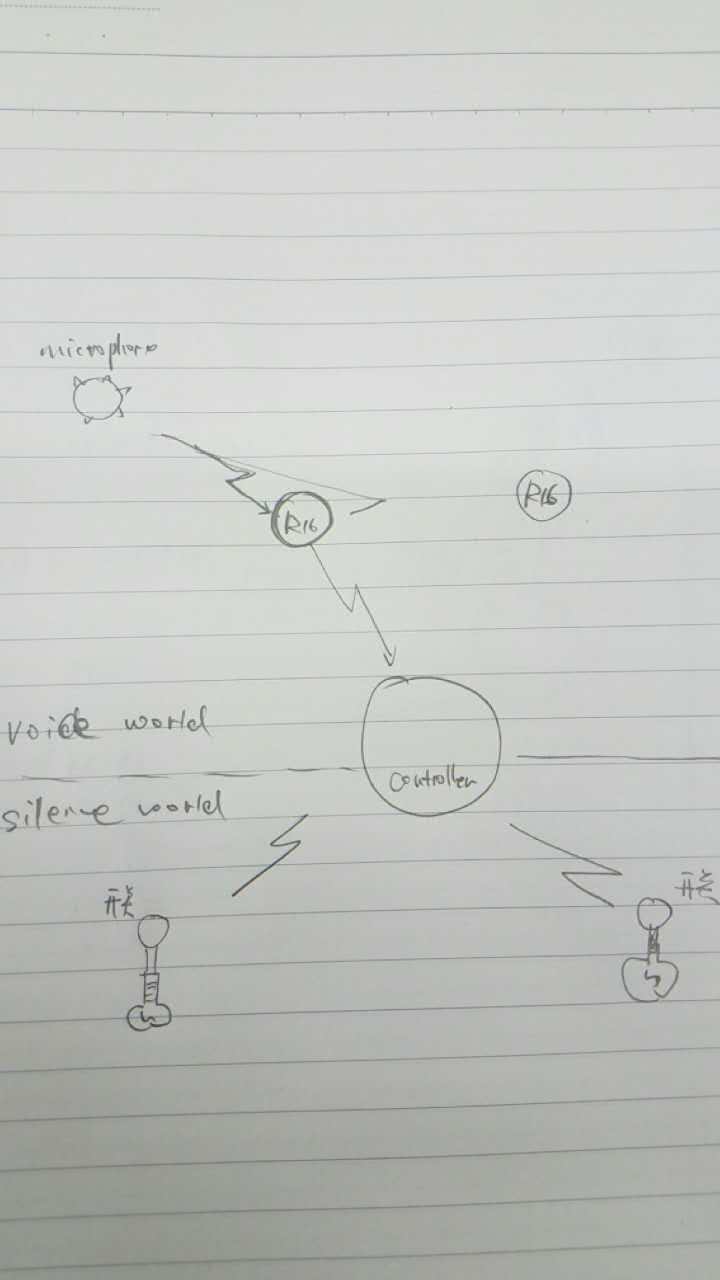 microphone
R16
R16
voice world
controller
silence world
开关
开关